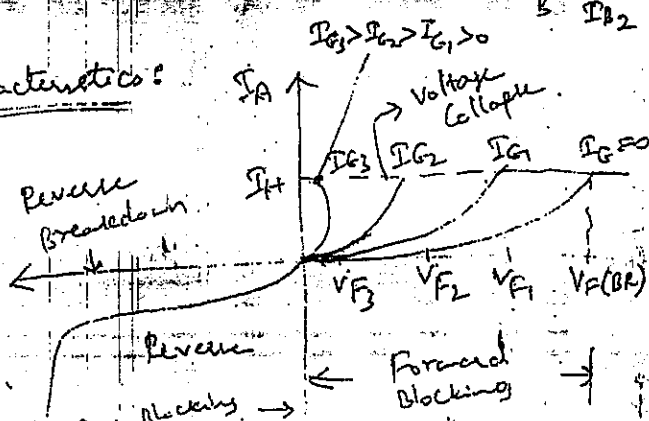 B I_B2
I_G3 > I_G2 > I_G1 > 0
acteristics:
I_A
Voltage
Collapse
I_H
I_G3 I_G2 I_G1 I_G=0
Reverse
Breakdown
V_F3 V_F2 V_F1 V_F(BR)
Reverse
Blocking
Forward
Blocking